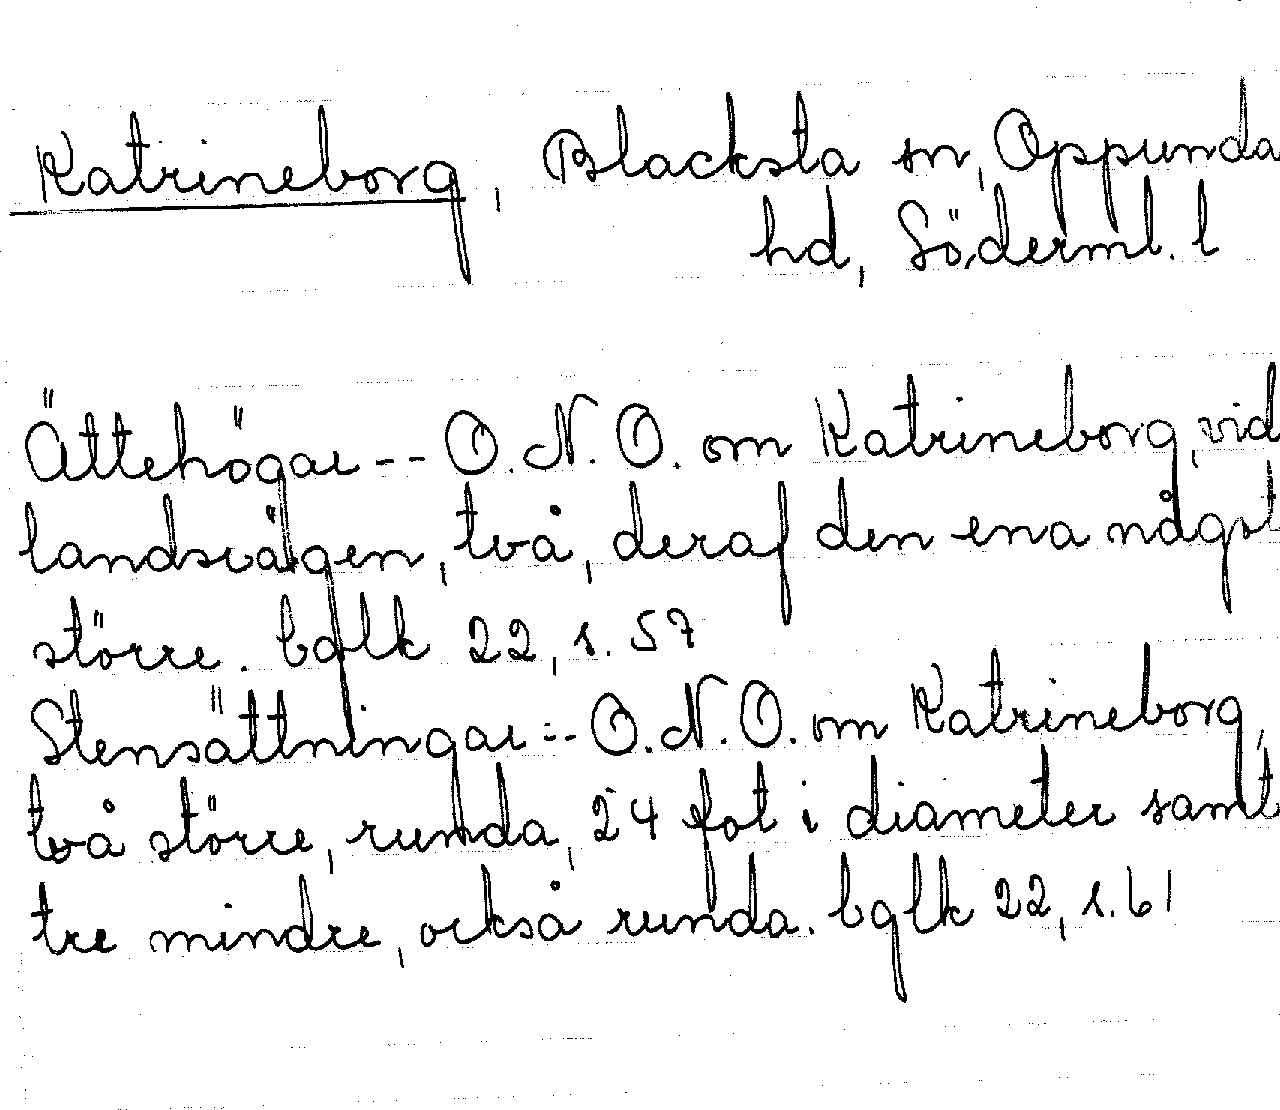 Katrineborg, Blacksta sn, Oppunda
hd, Söderml. l
Ättehögar -- O.N.O. om Katrineborg, vid
landsvägen, två, deraf den ena något
större. bglk 22, s. 57
Stensättningar -- O.N.O. om Katrineborg,
två större, runda, 24 fot i diameter samt
tre mindre, också runda. bglk 22, s. 61